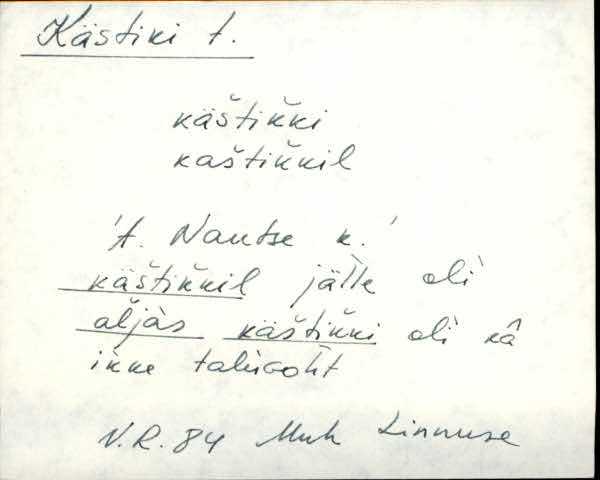 Kästiki t.
käštik̆ki
kaštik̆kil
't. Nautse k.'
käštik̆kil jälle oli
aljàs käštik̆ki oli kâ
ikke talukoht
V.R. 84 Muh Linnuse